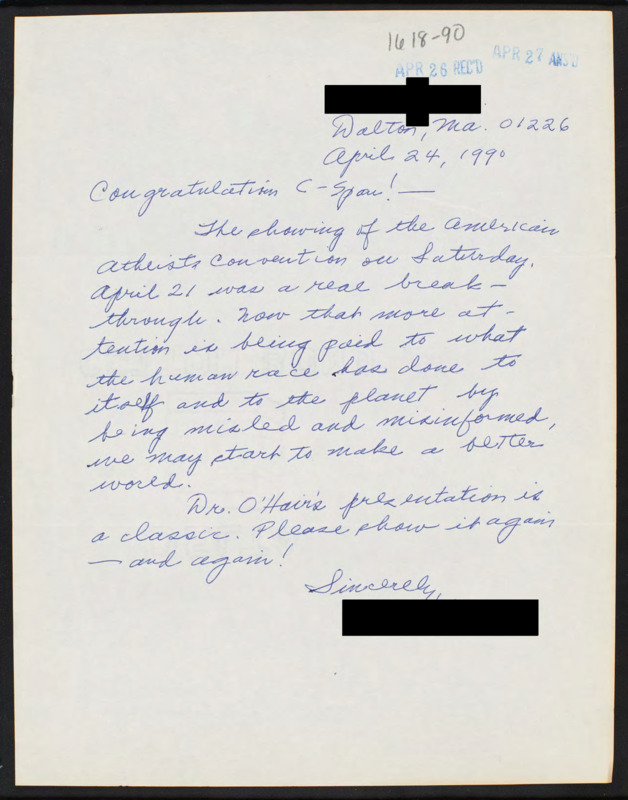 1618-90
APR 26 REC'D
APR 27 ANS'D
Dalton, Ma. 01226
April 24, 1990
Congratulation C-Span! —
The showing of the American
Atheists Convention on Saturday,
April 21 was a real break-
through. Now that more at-
tention is being paid to what
the human race has done to
itself and to the planet by
being misled and misinformed,
we may start to make a better
world.
Dr. O'Hair's presentation is
a classic. Please show it again
— and again!
Sincerely,